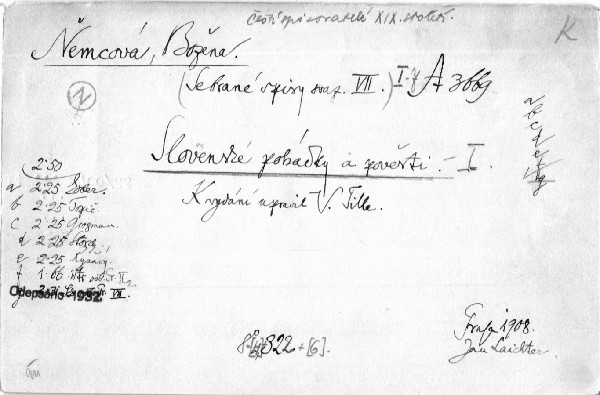 Čeští spisovatelé XIX. století.
K
Němcová, Božena.
(Sebrané spisy svaz. VII.) I. f A 3669
Slovenské pohádky a pověsti. - I.
K vydání upravil V. Tille.
2·50
a 2·25
b 2·25 Topič
c 2·25 Grosman
d 2·25
e 2·25
f 1·66
Opepsáno 1932
8° 322 + [6].
Praha 1908.
Jan Laichter.